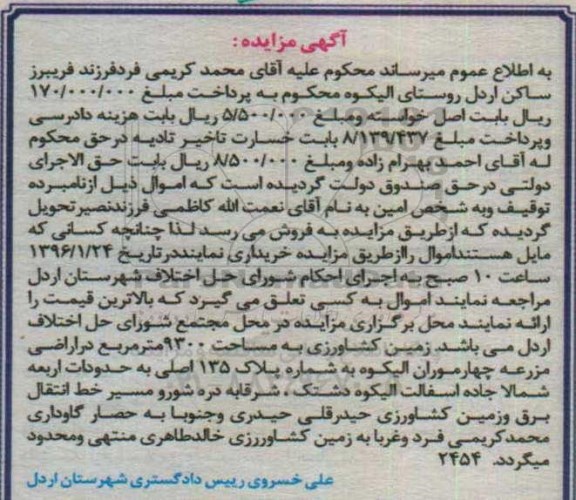 آگهی مزایده:
به اطلاع عموم میرساند محکوم علیه آقای محمد کریمی فردفرزند فریبرز
ساکن اردل روستای الیکوه محکوم به پرداخت مبلغ ۱۷۰/۰۰۰/۰۰۰
ریال بابت اصل خواسته ومبلغ ۵/۵۰۰/۰۰۰ ریال بابت هزینه دادرسی
وپرداخت مبلغ ۸/۱۳۹/۴۳۷ بابت خسارت تاخیر تادیه درحق محکوم
له آقای احمد بهرام زاده ومبلغ ۸/۵۰۰/۰۰۰ ریال بابت حق الاجرای
دولتی درحق صندوق دولت گردیده است که اموال ذیل ازنامبرده
توقیف وبه شخص امین به نام آقای نعمت الله کاظمی فرزندنصیرتحویل
گردیده که ازطریق مزایده به فروش می رسد لذا چنانچه کسانی که
مایل هستنداموال راازطریق مزایده خریداری نماینددرتاریخ ۱۳۹۶/۱/۲۴
ساعت ۱۰ صبح به اجرای احکام شورای حل اختلاف شهرستان اردل
مراجعه نمایند اموال به کسی تعلق می گیرد که بالاترین قیمت را
ارائه نمایند محل برگزاری مزایده در محل مجتمع شورای حل اختلاف
اردل می باشد. زمین کشاورزی به مساحت ۹۳۰۰مترمربع دراراضی
مزرعه چهارموران الیکوه به شماره پلاک ۱۳۵ اصلی به حدودات اربعه
شمالا جاده اسفالت الیکوه دشتک . شرقابه دره شورو مسیر خط انتقال
برق وزمین کشاورزی حیدرقلی حیدری وجنوبا به حصار گاوداری
محمدکریمی فرد وغربا به زمین کشاورزی خالدطاهری منتهی ومحدود
میگردد. ۲۴۵۴
علی خسروی رییس دادگستری شهرستان اردل